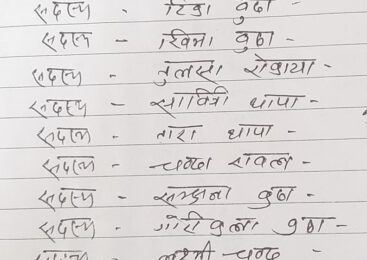 सदस्य - टिका बुढा
सदस्य - रविना बुढा
सदस्य - तुलसा रोकाया -
सदस्य - सावित्री थापा -
सदस्य - तारा थापा -
सदस्य - चन्द्रा रावल -
सदस्य - सम्झना बुढा -
सदस्य - गोरीकला बुढा -
सदस्य - लक्ष्मी चन्द -